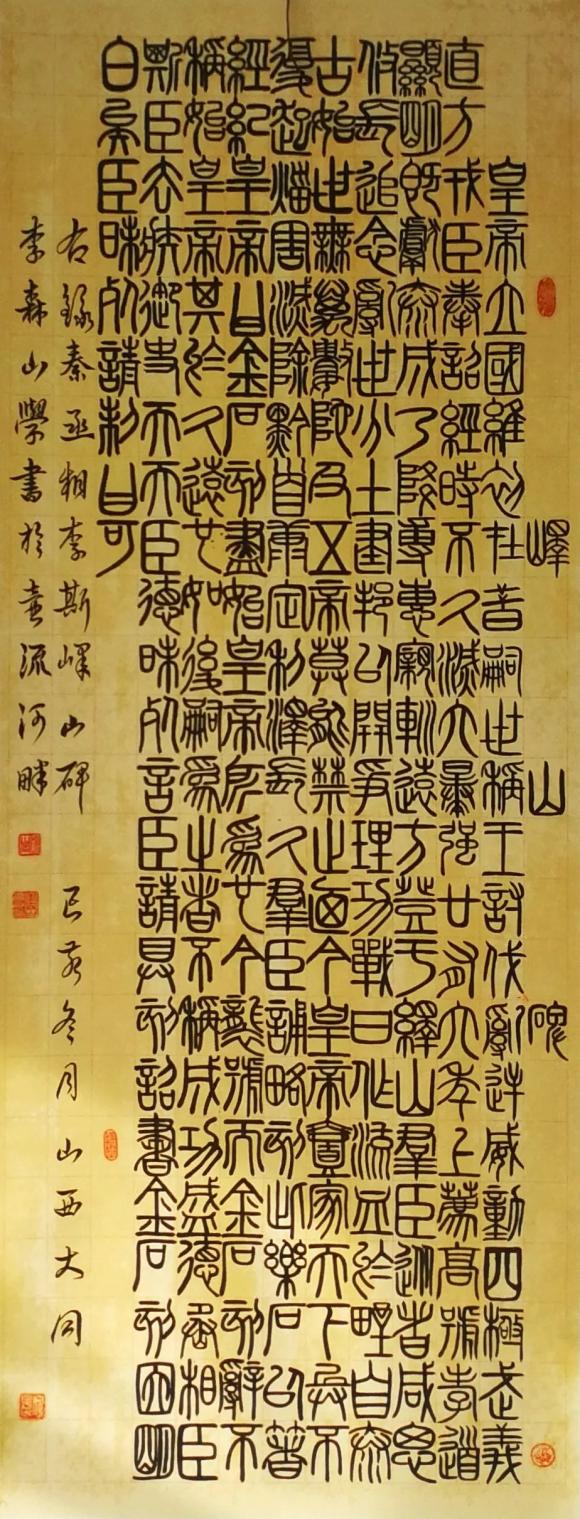 嶧山碑
皇帝立國維初在昔嗣世稱王討伐亂逆威動四極武義
直方戎臣奉詔經時不久滅六暴強廿有六年上薦高號孝道
顯明既獻泰成乃降專惠親巡遠方登于繹山群臣從者咸思
攸長追念亂世分土建邦以開爭理功戰日作流血於野自泰
古始世無萬數陀及五帝莫能禁止迺今皇帝壹家天下兵不
復起災害滅除黔首康定利澤長久群臣誦略刻此樂石以著
經紀皇帝曰金石刻盡始皇帝所為也今襲號而金石刻辭不
稱始皇帝其於久遠也如後嗣為之者不稱成功盛德丞相臣
斯臣去疾御史夫夫臣德昧死言臣請具刻詔書金石刻因明
白矣臣昧死請制曰可
右錄秦丞相李斯嶧山碑 己亥冬月山西大同
李森山學書於壺流河畔